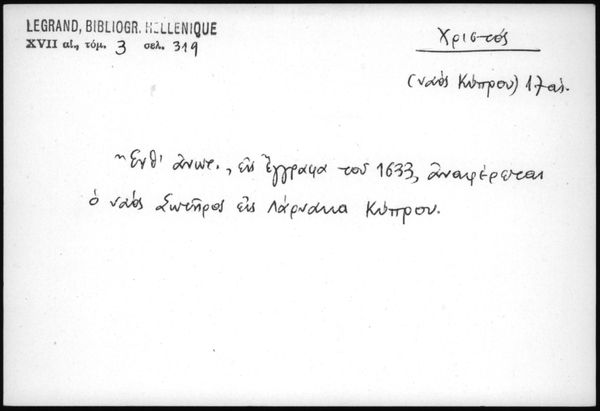 LEGRAND, BIBLIOGR. HELLENIQUE
XVII αἰ., τόμ. 3 σελ. 319
Χριστός
(ναὸς Κύπρου) 17 αἰ.
Ἔνθ' ἀνωτ., εἰς ἔγγραφα τοῦ 1633, ἀναφέρεται
ὁ ναὸς Σωτῆρος εἰς Λάρνακα Κύπρου.